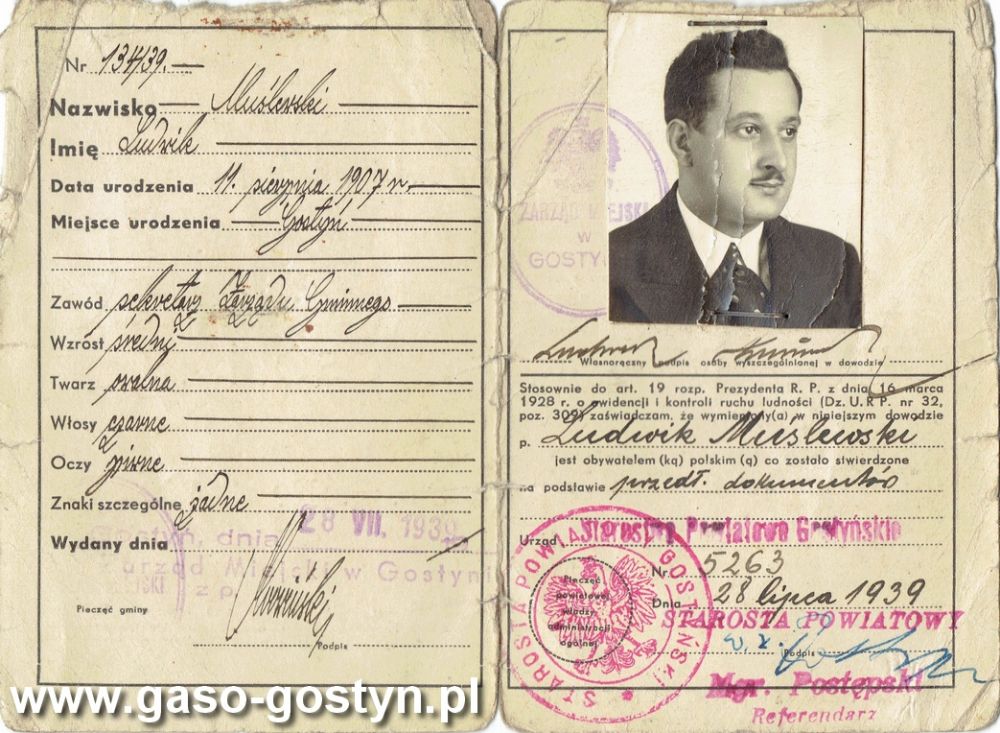 Nr 134/39.
Nazwisko Muślewski
Imię Ludwik
Data urodzenia 11. sierpnia 1907 r.
Miejsce urodzenia Gostyń
Zawód sekretarz Zarządu Gminnego
Wzrost średni
Twarz owalna
Włosy czarne
Oczy piwne
Znaki szczególne żadne
28 VII. 1939
Wydany dnia
dnia
Urząd Miejski w Gostyniu
z p
Pieczęć gminy
Podpis
ZARZĄD MIEJSKI
W
GOSTY
Własnoręczny podpis osoby wyszczególnionej w dowodzie
Stosownie do art. 19 rozp. Prezydenta R. P. z dnia 16 marca
1928 r. o ewidencji i kontroli ruchu ludności (Dz. U. R. P. nr 32,
poz. 309) zaświadczam, że wymieniony(a) w niniejszym dowodzie
p. Ludwik Muślewski
jest obywatelem (ką) polskim (ą) co zostało stwierdzone
na podstawie przedł. dokumentów
Urząd Starostwo Powiatowe Gostyńskie
Nr 5263
Dnia 28 lipca 1939
STAROSTA POWIATOWY GOSTYŃSKI
Pieczęć
powiatowej
władzy
administracji
ogólnej
STAROSTA POWIATOWY
w z.
Podpis
Mgr. Postępski
Referendarz
www.gaso-gostyn.pl